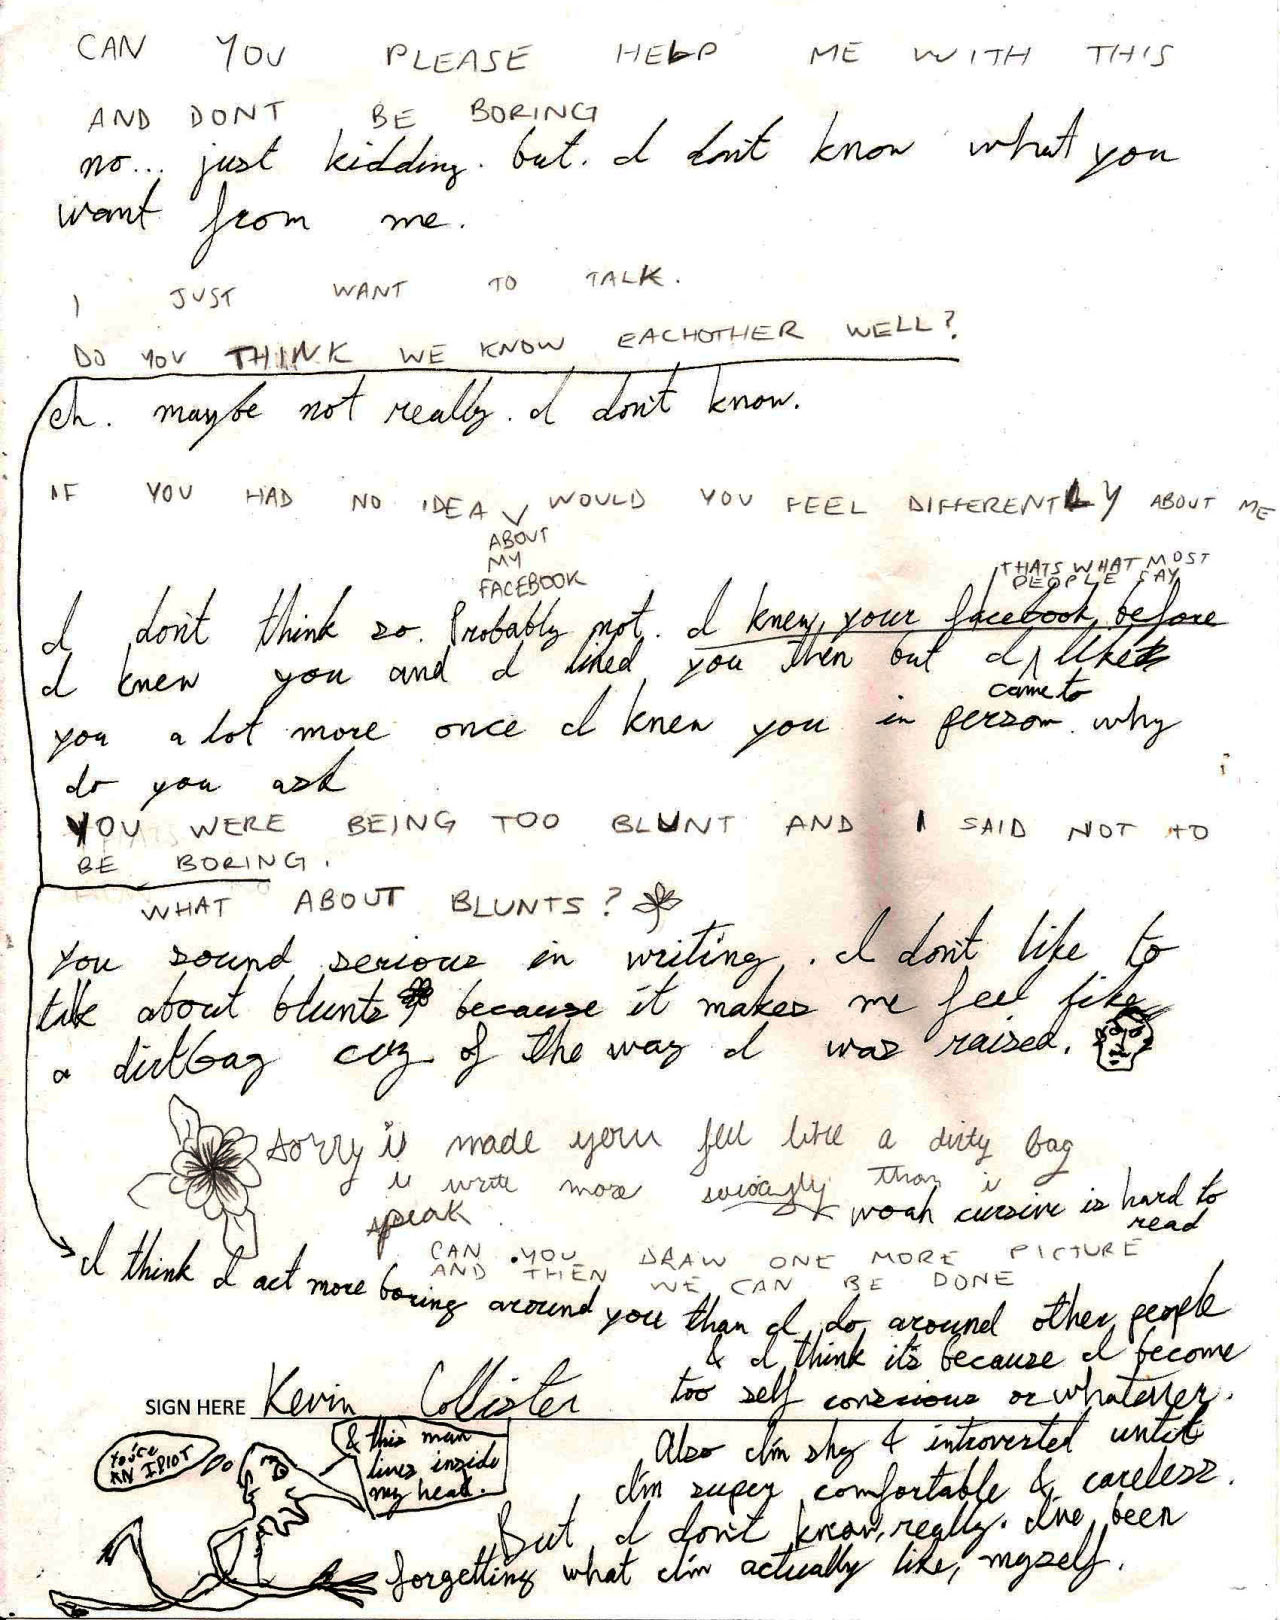 CAN YOU PLEASE HELP ME WITH THIS
AND DONT BE BORING
no... just kidding. but. I don't know what you
want from me.
I JUST WANT TO TALK.
DO YOU THINK WE KNOW EACHOTHER WELL?
eh. maybe not really. I don't know.
IF YOU HAD NO IDEA WOULD YOU FEEL DIFFERENTLY ABOUT ME
ABOUT
MY
FACEBOOK
THATS WHAT MOST
PEOPLE SAY
I don't think so. Probably not. I knew your facebook before
I knew you and I liked you then but I like
came to
you a lot more once I knew you in person. why
do you ask
YOU WERE BEING TOO BLUNT AND I SAID NOT TO
BE BORING.
WHAT ABOUT BLUNTS?
You sound serious in writing. I don't like to
talk about blunts because it makes me feel like
a dirtbag cuz of the way I was raised.
sorry i made you feel like a dirty bag
i write more seriously than i
speak
woah cursive is hard to
read
CAN YOU DRAW ONE MORE PICTURE
AND THEN WE CAN BE DONE
I think I act more boring around you than I do around other people
& I think it's because I become
too self conscious or whatever.
SIGN HERE Kevin Collister
Also I'm shy & introverted until
I'm super comfortable & careless.
But I don't know, really. I've been
forgetting what I'm actually like, myself.
You're
AN IDIOT
& this man
lives inside
my head.